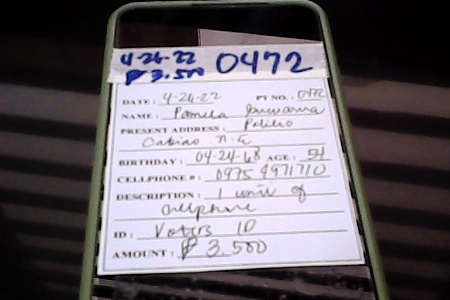 4-26-22 0472
₱ 3.500
DATE: 4-26-22 PT NO.: 0472
NAME: Pamela
PRESENT ADDRESS: Polilio
Cabiao N-E
BIRTHDAY: 04-24-68 AGE: 54
CELLPHONE #: 0975 4971710
DESCRIPTION: 1 unit of
cellphone
ID: Voters ID
AMOUNT: ₱ 3,500